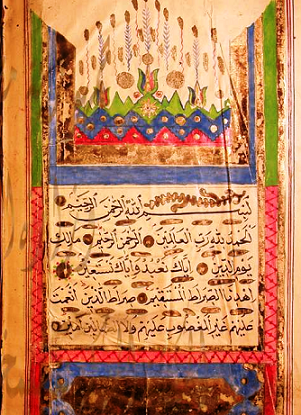 بسم الله الرحمن الرحيم
الحمد لله رب العالمين الرحمن الرحيم مالك
يوم الدين إياك نعبد وإياك نستعين
اهدنا الصراط المستقيم صراط الذين أنعمت
عليهم غير المغضوب عليهم ولا الضالين آمين